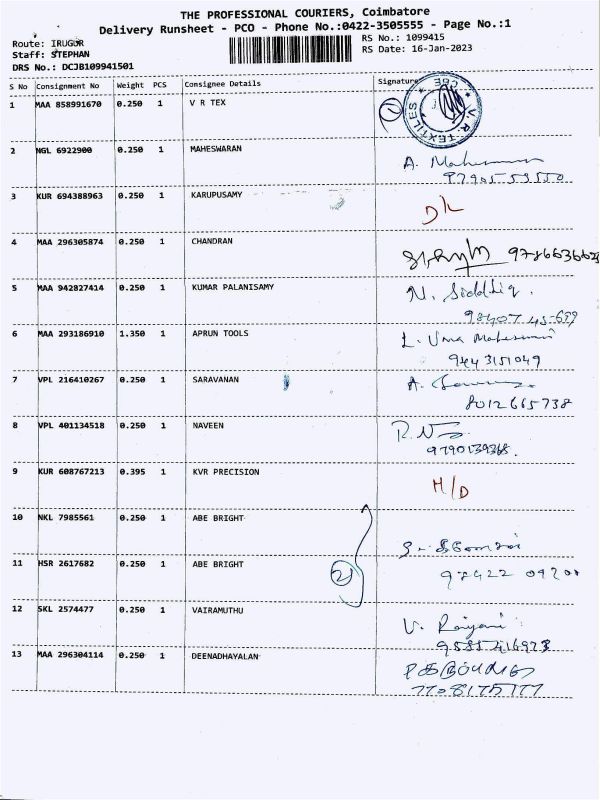 THE PROFESSIONAL COURIERS, Coimbatore
Delivery Runsheet - PCO - Phone No.:0422-3505555 - Page No.:1
Route: IRUGUR
RS No.: 1099415
Staff: STEPHAN
RS Date: 16-Jan-2023
DRS No.: DCJB109941501
S No Consignment No Weight PCS Consignee Details Signature
1 MAA 858991670 0.250 1 V R TEX
1
V. R. TEXTILES CBE
2 NGL 6922900 0.250 1 MAHESWARAN
A.
3 KUR 694388963 0.250 1 KARUPUSAMY
D/L
4 MAA 296305874 0.250 1 CHANDRAN
5 MAA 942827414 0.250 1 KUMAR PALANISAMY
N. Siddhiq.
6 MAA 293186910 1.350 1 APRUN TOOLS
L. Uma Maheswari
9443151049
7 VPL 216410267 0.250 1 SARAVANAN
A.
8012665738
8 VPL 401134518 0.250 1 NAVEEN
9790139368.
9 KUR 608767213 0.395 1 KVR PRECISION
H/D
10 NKL 7985561 0.250 1 ABE BRIGHT
11 HSR 2617682 0.250 1 ABE BRIGHT
2
12 SKL 2574477 0.250 1 VAIRAMUTHU
V.
9585416923
13 MAA 296304114 0.250 1 DEENADHAYALAN